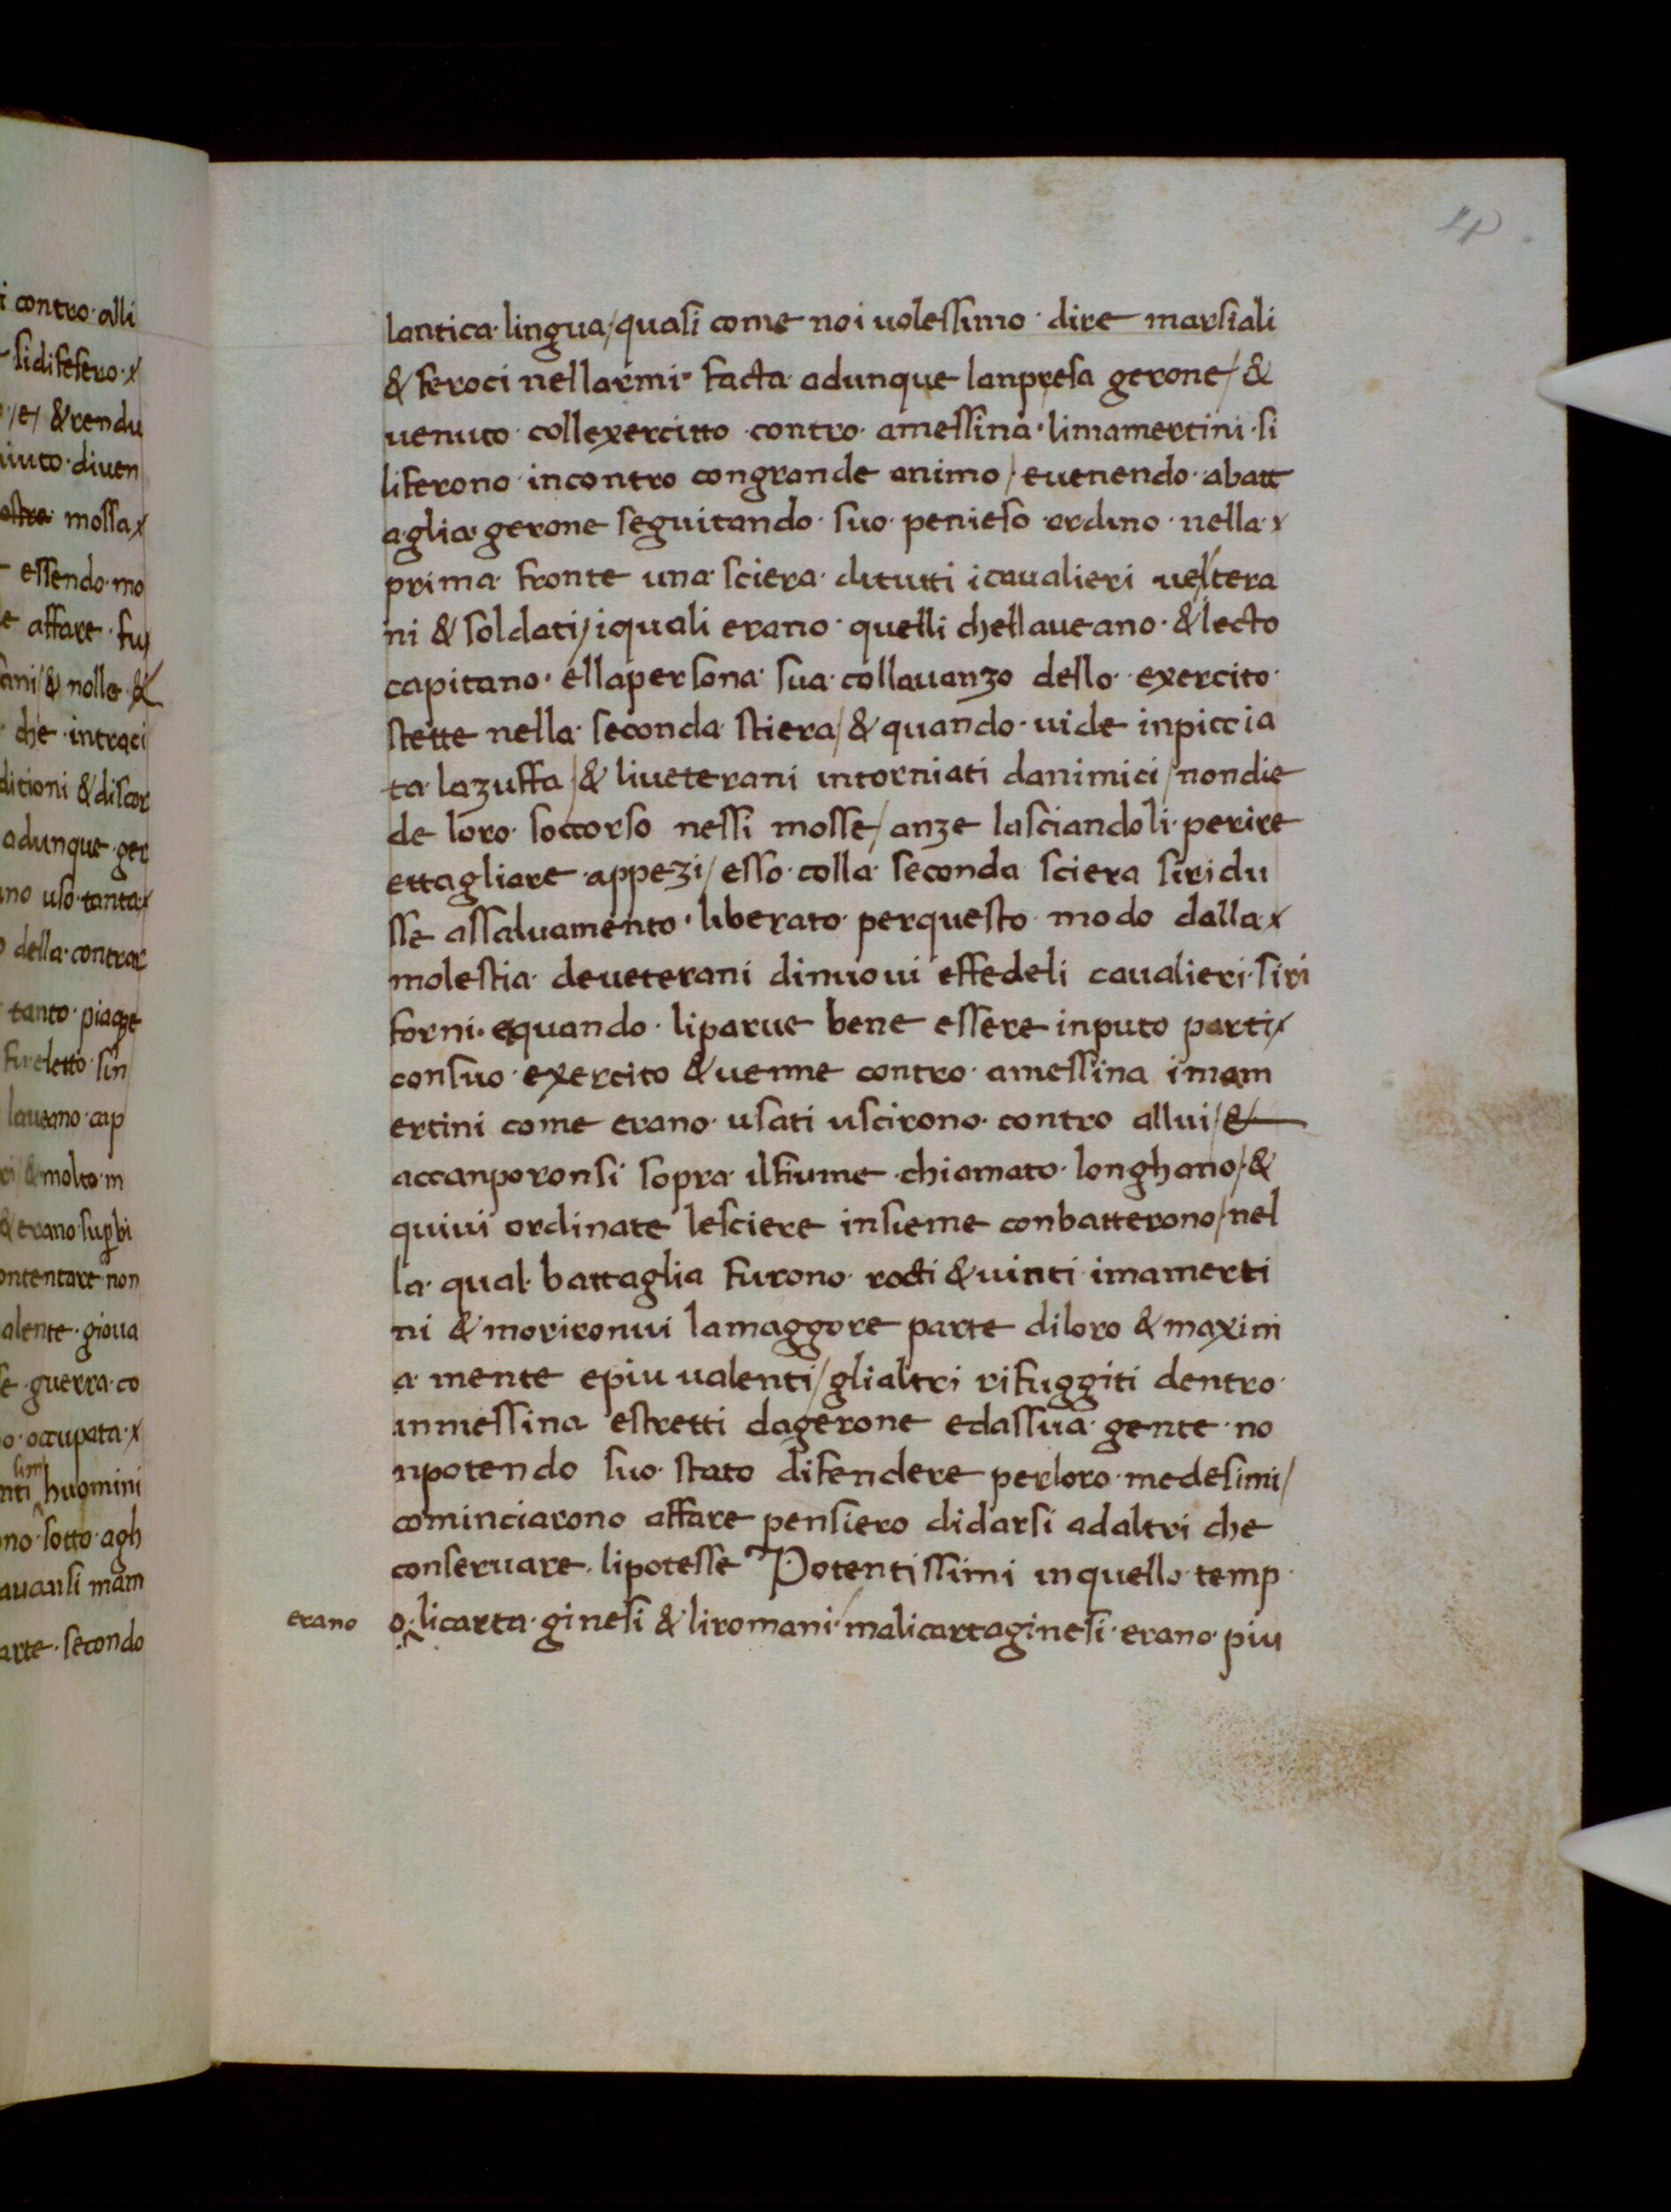 i contro·alli
sidifefero·x
/e/ & rendu
iuto·diuen
mossa x
essendo·mo
e affare·fu
ani/& nolle·&
che·intraci
ditioni & discor
adunque·ger
no uso·tanta·x
della·contrar
tanto·piage
fu eletto·sin
laueano·cap
& molto·m
& erano·supbi
ontentare·non
alente·gioua
e·guerra·co
o·occupata·x
nti huomini
no·sotto·agh
auansi mam
arte·secondo
4
lantica·lingua/quasi come noi uolessimo·dire marsiali
& feroci nellarmi· facta adunque lanpresa gerone/&
uenuto collexercitto·contro·amessina·limamertini·si
liferono·incontro congrande animo/euenendo·abatt
aglia·gerone seguitando·suo·penieso·ordino·nella·x
prima·fronte una·sciera·ditutti icaualieri uestera
ni & soldati/iquali erano·quelli chellaueano·&lecto
capitano·ellapersona·sua·collauanzo dello·exercito·
stette nella·seconda·stiera/& quando·uide inpiccia
ta·lazuffa/& liueterani intorniati danimici/nondie
de loro·soccorso nessi mosse/anze lasciandoli·perire
ettagliare·appezi/esso·colla·seconda sciera siridu
sse assaluamento·liberato·perquesto·modo dalla·x
molestia·deueterani dinuoui effedeli caualieri·siri
forni·equando·liparue bene essere inputo parti x
consuo·exercito & uenne contro·amessina imam
ertini come erano·usati uscirono·contro allui/&
accanporonsi sopra·ilfiume·chiamato·longhano/&
quiui ordinate lesciere insieme conbatterono/nel
la·qual·battaglia furono·rocti & uinti·imamerti
ni & morironui lamaggore parte diloro & maxim
a·mente epiu ualenti/glialtri rifuggiti dentro·
inmessina estretti dagerone edassua·gente·no
npotendo suo·stato difendere perloro·medesimi/
cominciarono affare pensiero didarsi adaltri che
conseruare·lipotesse Potentissimi inquello·temp·
erano o·licarta·ginesi & liromani·malicartaginesi·erano·piu